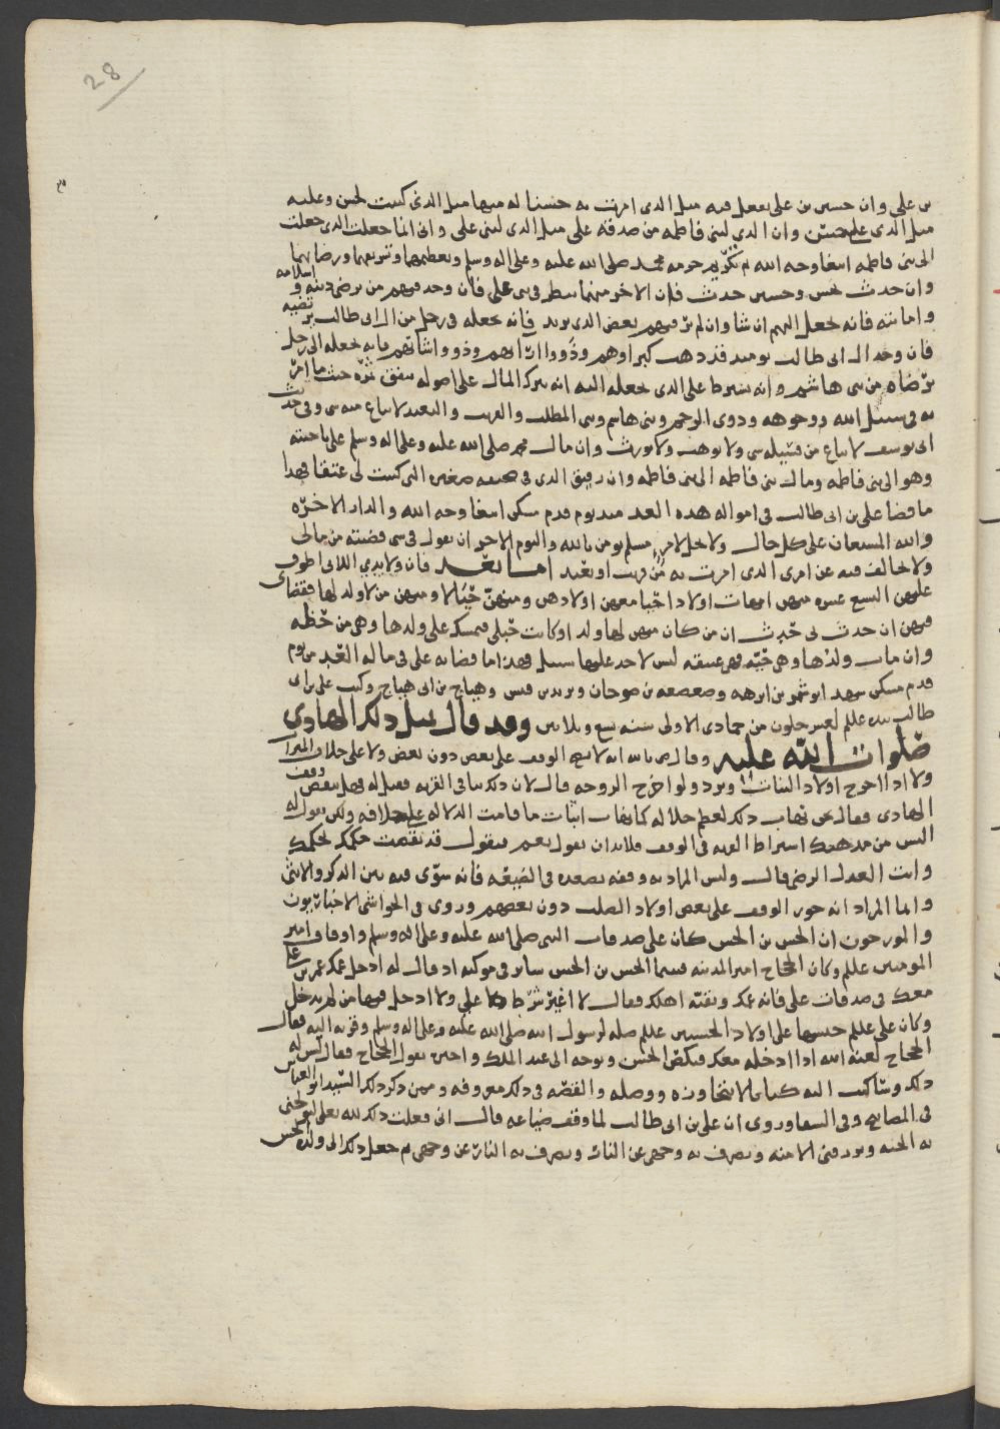 28
بن علي وان حسين بن علي يفعل فيه مثل الذي امرت به حسنا له منها مثل الذي كتبت لحسن وعليه
مثل الذي على حسن وان الذي لبني فاطمه من صدقه علي مثل الذي لبني علي واني انما جعلت الذي جعلت
الى بني فاطمه ابتغا وجه الله ثم تكريم حرمه محمد صلى الله عليه وعلى اله وسلم وتعظيمها وتشريفها ورضا بهما
وان حدث بحسن وحسين حدث فان الاخر منهما ينظر في بني علي فان وجد فيهم من يرضى دينه و اسلامه
وامانته فانه يجعل اليهم ان شا وان لم ير فيهم بعض الذي يريد فانه يجعله في رجل من ال ابي طالب يرتضيه
فان وجد ال ابي طالب يومئذ قد ذهب كبراوهم وذووا ارايهم وذووا شانهم فانه يجعله الى رجل
يرضاه من بني هاشم وانه يشترط على الذي يجعله اليه انه يترك المال على اصوله ينفق ثمره حيث ما امر
به في سبيل الله ووجوهه وذوي الرحم وبني هاشم وبني المطلب والقريب والبعيد لا يباع منه شي وفي حديث
ابي يوسف لا يباع من شي ولا يوهب ولا يورث وان مال محمد صلى الله عليه وعلى اله وسلم على ناحيته
وهو الى بني فاطمه ومال بني فاطمه الى بني فاطمه وان رقيق الذي في صحيفه صغيره التي كتبت لي عتقا فهذا
ما قضا علي بن ابي طالب في امواله هذه الغد من يوم قدم مسكن ابتغا وجه الله والدار الاخره
والله المستعان على كل حال ولا يحل لامرء مسلم يومن بالله واليوم الاخر ان يقول في شي قضيته من مالي
ولا يخالف فيه عن امري الذي امرت به من قريب او بعيد اما بعد فان ولايدي اللاتي اطوف
عليهن السبع عشره منهن امهات اولاد احيا معهن اولادهن ومنهن حبالا ومنهن من لا ولد لها فقضاي
فيهن ان حدث لي حدث ان من كان منهن لها ولد او كانت حبلى فتمسك على ولدها وهي من حظه
وان مات ولدها وهي حيه فهي عتيقه ليس لاحد عليها سبيل فهذا ما قضا به علي في ماله الغد من يوم
قدم مسكن شهد ابو شمر بن ابرهه وصعصعه بن صوحان ويزيد بن قيس وهياج بن ابي هياج وكتب علي بن ابي
طالب بيده علم لعشر خلون من جمادى الاولى سنه سبع وثلاثين وقد قال بمثل ذلك الهادي
صلوات الله عليه وقال الوقف على بعض دون بعض ولا على خلاف الميراث
ولا اذا اخرج اولاد البنات ويرد ولو اخرج الزوجه قال لان ذلك ينافي القربه فقيل له فهل ينقض وقف
الهادي فقال ذلك لعظم جلاله اثبات ما قامت الدلاله على خلافه ولكن يقول له
اليس من مذهبك اشتراط القربه في الوقف فلا بد ان يقول نعم فيقول قد نقضت حكمك بحكمك
وانت العدل الرضى قال وليس المراد به وقفه بصعده في الضيعه فانه سوى فيه بين الذكر والانثى
وانما المراد انه جوز الوقف على بعض اولاد الصلب دون بعضهم وروى في الحواشي الاخباريون
والمورخون ان الحسن بن الحسن كان على صدقات النبي صلى الله عليه وعلى اله وسلم واوقاف امير
المومنين علم وكان الحجاج امير المدينه فبينما الحسن بن الحسن ساير في موكبه اذ قال له ادخل عمك عمر بن علي
معك في صدقات علي فانه عمك وبقيه اهلك فقال لا اغير شرط علي ولا ادخل فيها من لم يدخل
وكان علي علم حبسها على اولاد الحسنين علم صله لرسول الله صلى الله عليه وعلى اله وسلم وقربه اليه فقال
الحجاج لعنه الله اذا ادخله معك فنكص الحسن وتوجه الى عبد الملك واخبره بقول الحجاج فقال ليس له
ذلك وساكتب اليه كتابا لا يتجاوزه ووصله والقصه في ذلك معروفه وممن ذكر ذلك السيد ابو العباس
في المصابيح وفي الشفا وروى ان علي بن ابي طالب لما وقف ضياعه قال اني فعلت ذلك لله تعالى ليولجني
به الجنه ويرد في الامنه ويصرف به وجهي عن النار ويصرف به النار عن وجهي ثم جعل ذلك الى ولده الحسن